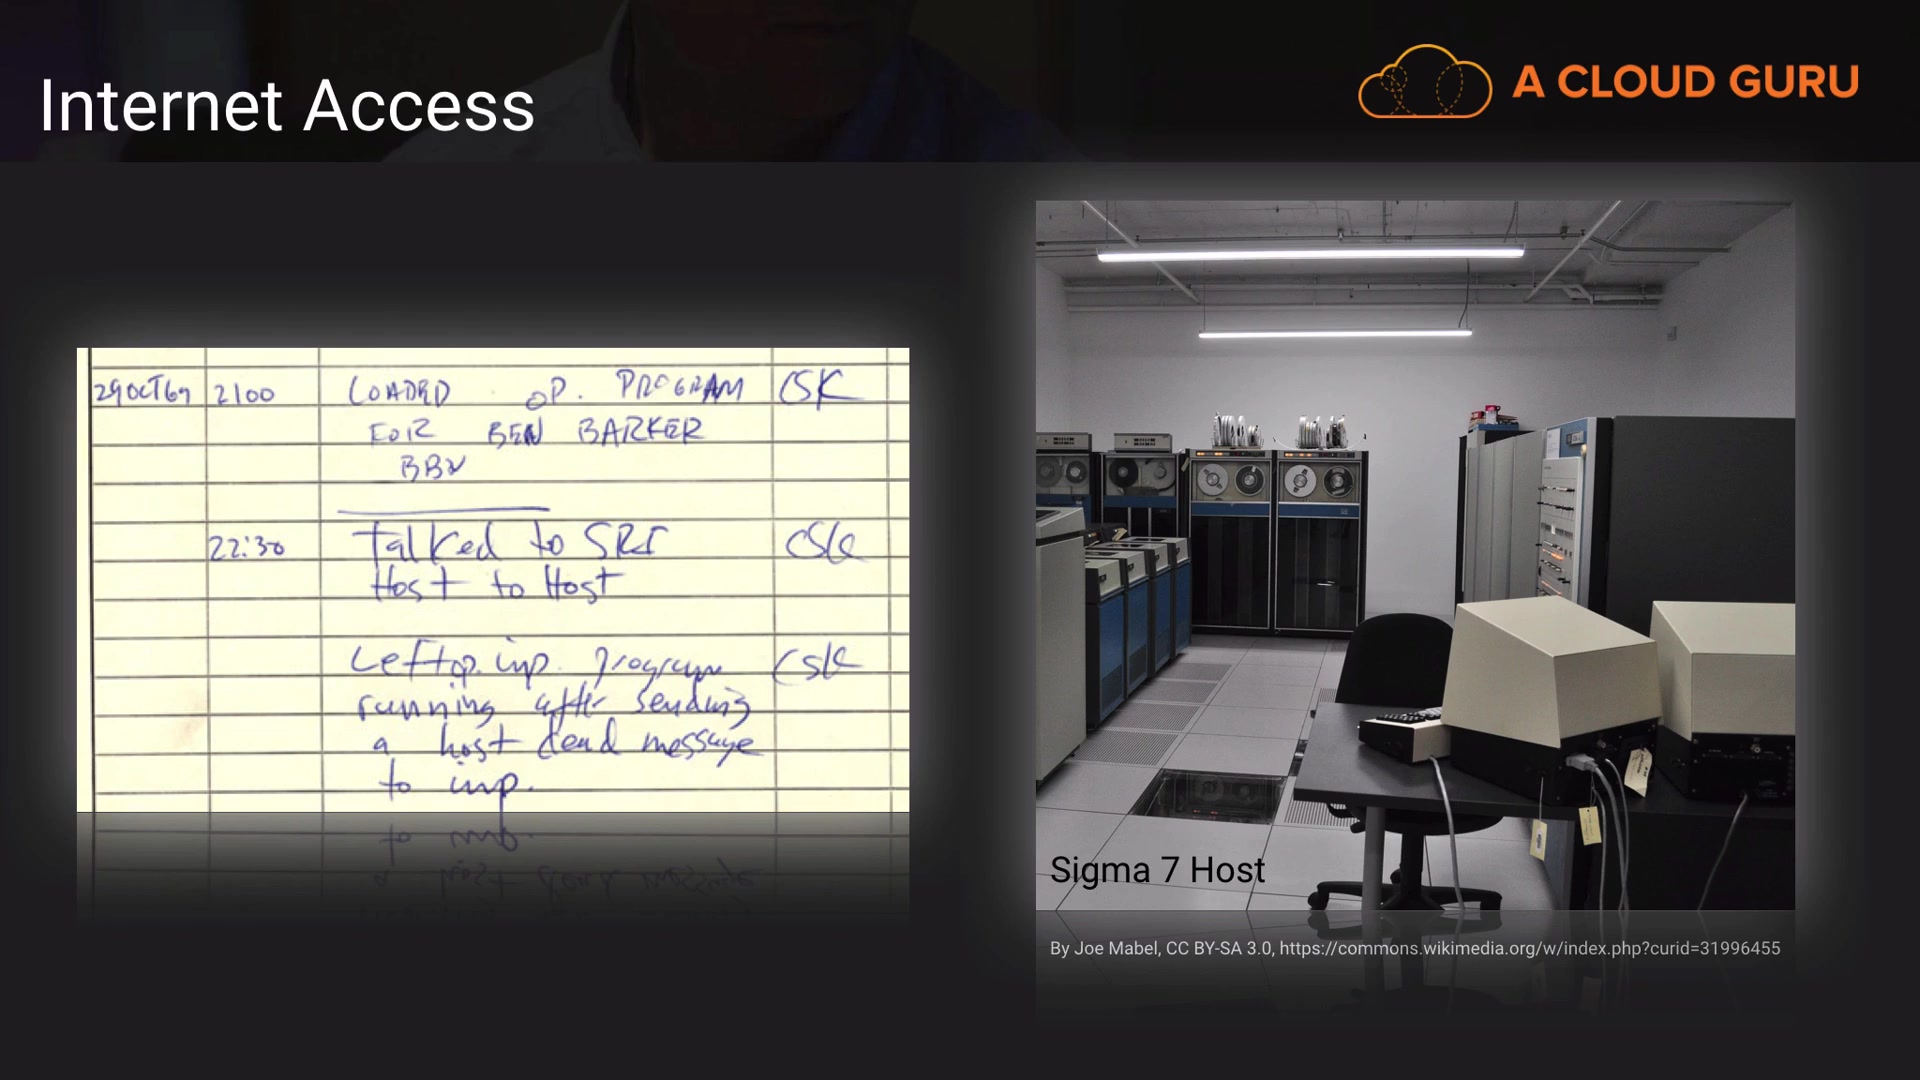 Internet Access
A CLOUD GURU
29OCT69 2100 LOADED OP. PROGRAM CSK
FOR BEN BARKER
BBN
22:30 Talked to SRI CSK
Host to Host
Left op. imp. program CSK
running after sending
a host dead message
to imp.
Sigma 7 Host
By Joe Mabel, CC BY-SA 3.0, https://commons.wikimedia.org/w/index.php?curid=31996455